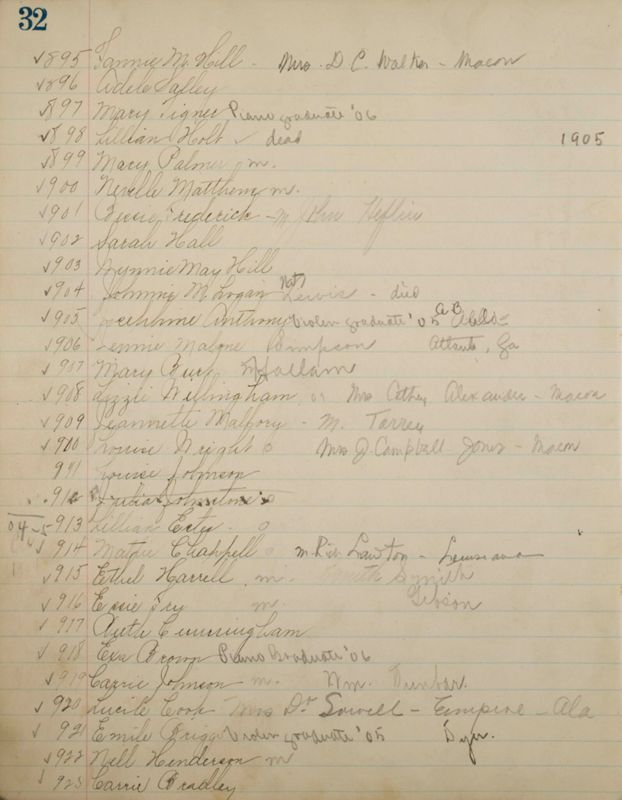 32
895 Fannie M. Hill - Mrs. D C. Walker - Macon
896 Adele Salley
897 Mary Tigner Piano graduate '06
898 Lillian Holt dead 1905
899 Mary Palmer m.
900 Nevelle Matthews m.
901 Bessie Frederick - m John Heflin
902 Sarah Hall
903 Annie May Hill
904 Johnnie M. Logan Lewis - died
905 Josephine Anthony Violin graduate '05 AB
906 Lennie Malone Simpson Atlanta, Ga
907 Mary Burt McCallam
908 Lizzie Willingham Mrs Alexander - Macon
909 Jeannette Mallory - m.
910 Louise Wright o Mrs J Campbell Jones - Macon
911 Louise Johnson
912 Johnston
04-5 913 Lillian Estes - o
914 Mattie Chappell o m Rich Lawton - Louisiana
915 Ethel Harrell m. Smith
916 Essie Fry m. Gibson
917 Ruth Cunningham
918 Eva Brown Piano Graduate '06
919 Carrie Johnson - m. Wm. Dunbar.
920 Lucile Cook Mrs Dr Sowell - Empire - Ala
921 Emile Briggs Violin graduate '05
922 Nell Henderson m
923 Carrie Bradley